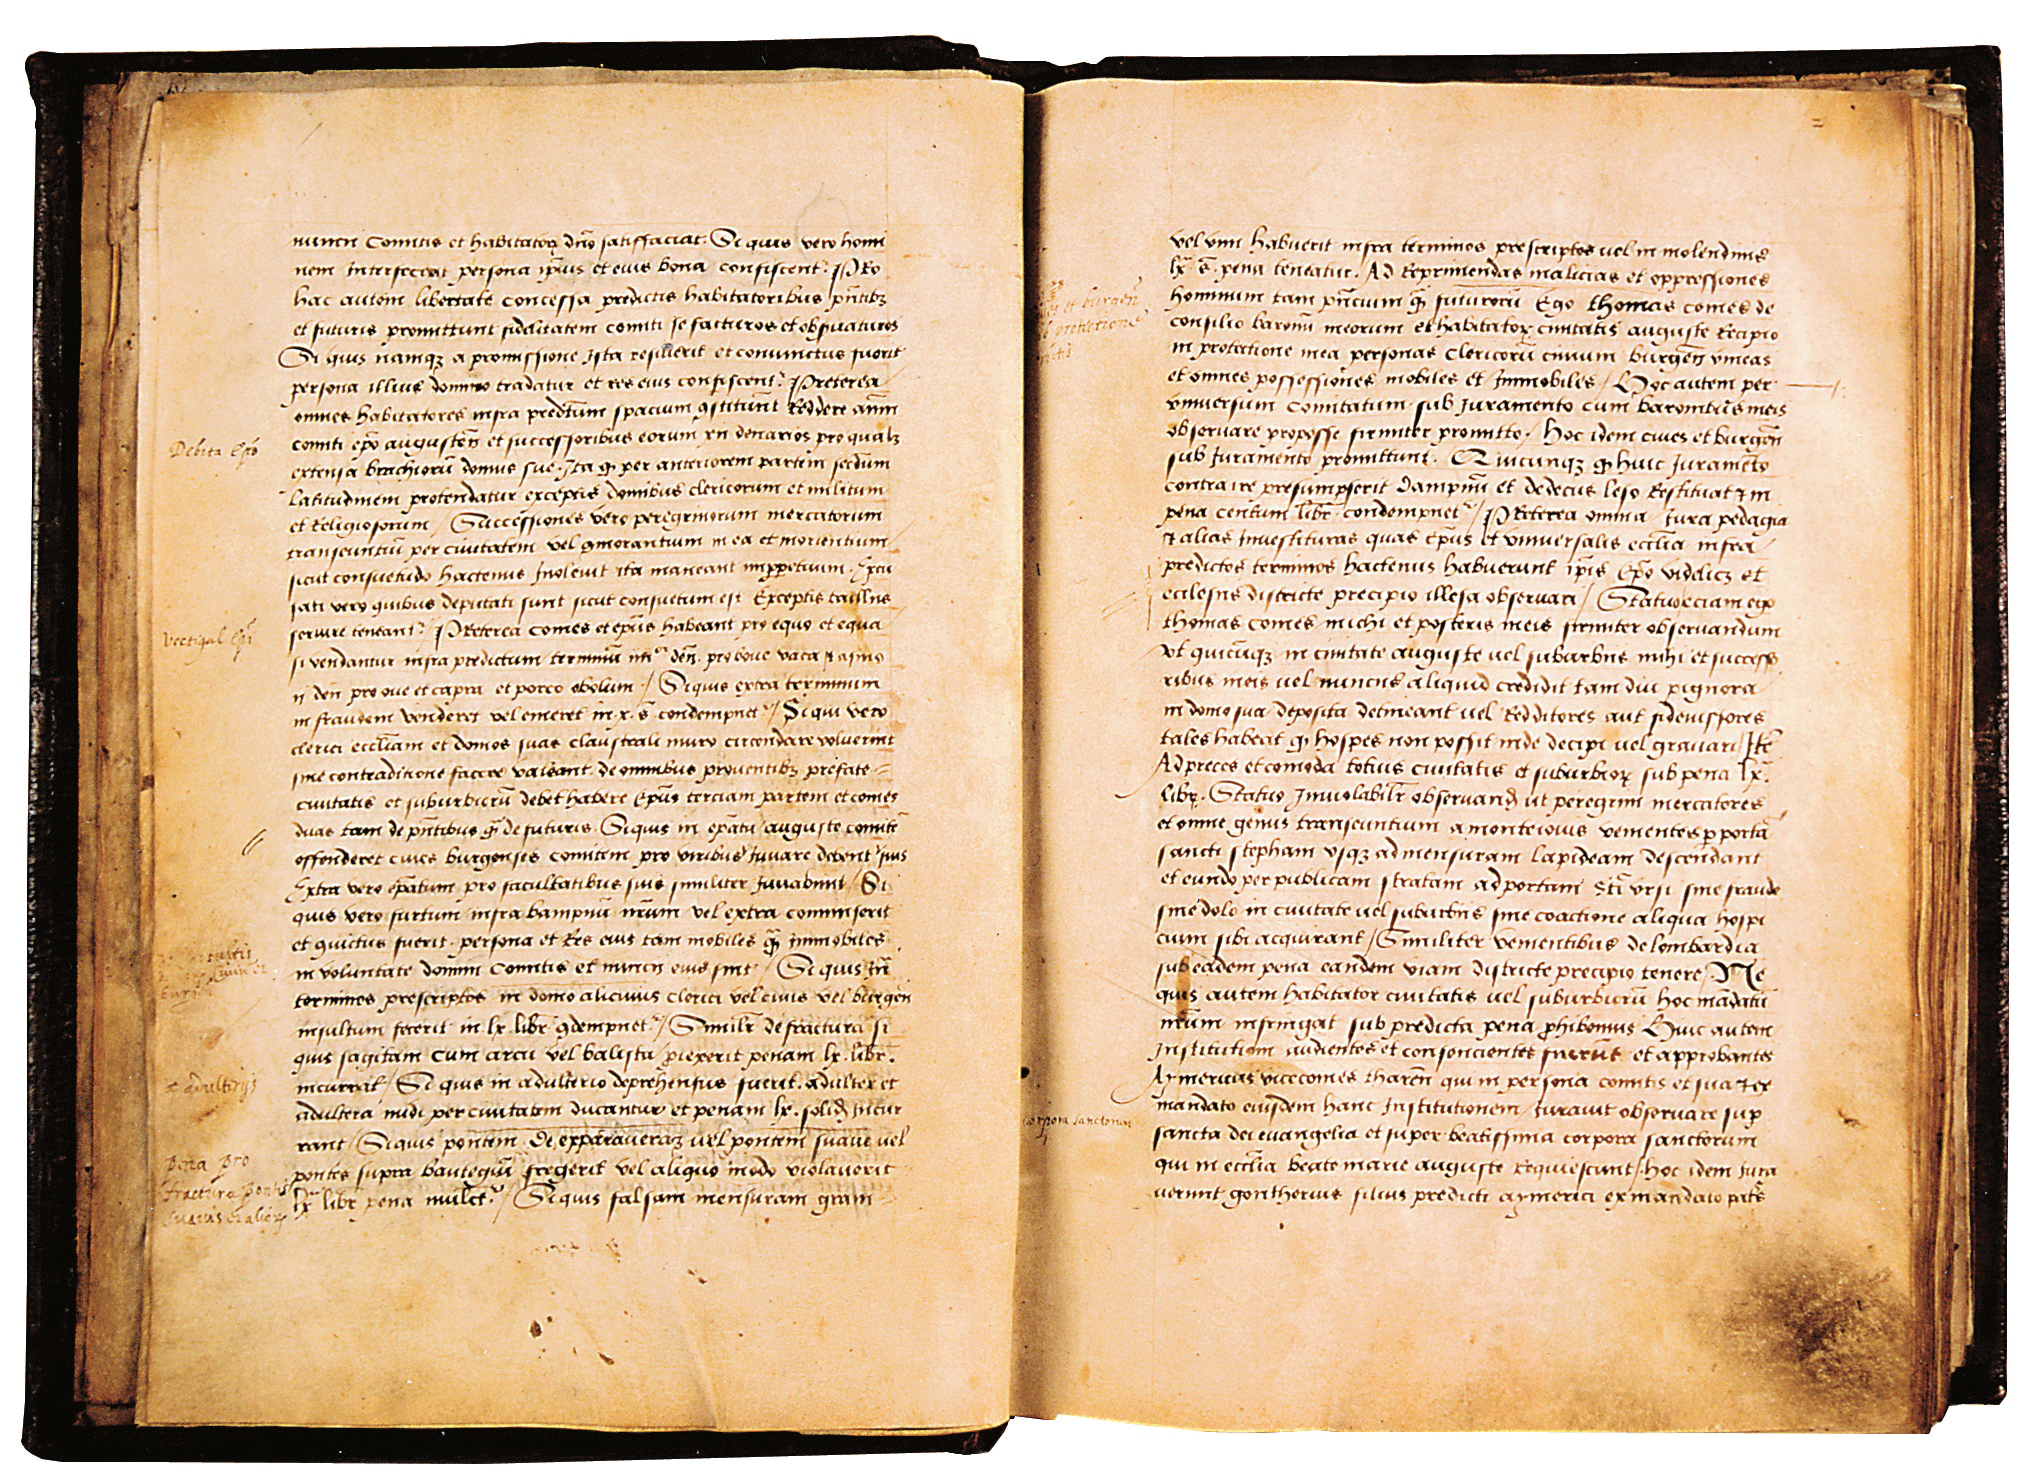 nuncii Comitis et habitatorꝝ dn̄o satisfaciat. Si quis vero homi
nem Interfecerit persona ip̄ius et eius bona confiscent᷑. PRo
hac autem libertate concessa predictis habitatoribus pn̄tibꝫ
et futuris promittunt fidelitatem comiti se facturos et obs̄uaturos
Si quis namqꝫ a promissione Ista resilierit et conuinctus fuerit
persona illius domino tradatur et res eius confiscent᷑. PReterea
omnes habitatores infra predc̄tum spacium ꝯstituūt Reddere ann̄
comiti ep̄o augusten̄ et successoribus eorum xii denarios pro qualꝫ
Debita Ep̄o
extensa brachiorū domus sue. Ita qꝫ per anteriorem partem secdūm
Latitudinem protendatur exceptis domibus clericorum et militum
et Religiosorum / Successiones vero peregrinorum mercatorum
transeuntiū per ciuitatem vel ꝯmorantium in ea et morientium
sicut consuetudo hactenus Inoleuit ita maneant imꝑpetuum. Excu
sati vero quibus deputati sunt sicut consuetum est Exceptis tasliis
Vectigal Ep̄i
seruire teneant᷑. PReterea Comes et ep̄us habeant pro equo et equa
si vendantur infra predictum terminū iiii den̄. pro boue vaca ⁊ asino
ii den̄ pro oue et capra et porco obolum / Si quis extra terminum
in fraudem venderet vel emeret in x. s̄. condempnet᷑ / Si qui vero
clerici eccl̄iam et domos suas claustrali muro circondare voluerint
sine contraditione facere valeant. de omnibus prouentibꝫ prefate
ciuitatis et suburbiorū debet habere Ep̄us terciam partem et comes
duas tam de pn̄tibus qm̄ de futuris. Si quis in ep̄atu auguste comitē
offenderet ciues burgenses comitem pro viribus Iuuare debent
Extra vero ep̄atum pro facultatibus suis similiter Iuuabunt / Si
quis vero furtum infra bampnū nr̄um vel extra commiserit
et ꝯuictus fuerit. persona et Res eius tam mobiles qm̄ immobiles
in voluntate domini Comitis et nuncii eius sint / Si quis Ifr̄
terminos prescriptos in domo alicuius Clerici vel ciuis vel burgen̄
insultum fecerit in lx. libr̄ ꝯdempnet᷑ / Similr̄ de fractura si
quis sagitam cum arcu vel balista ꝓiexerit penam lx. libr̄.
incurrat / Si quis in adulterio deprehensus fuerit. adulter et
adulteriis
adultera nudi per ciuitatem ducantur et penam lx. solid̄ incur
rant / Si quis pontem de epparauera vel pontem suaue vel
pena pro fractura pontis suauis et alior̄
pontes supra bauteguū fregerit vel aliquo modo violauerit
lx libr̄ pena mulcet᷑ / Si quis falsam mensuram grani
vel vini habuerit infra terminos prescriptos vel in molendinis
lx s̄. pena teneatur. Ad Reprimendas malicias et oppressiones
hominum tam pn̄cium qm̄ futurorū Ego thomas comes de
et burgen̄ protectione
consilio baronū meorum et habitatorꝝ ciuitatis auguste Recipio
in protectione mea personas Clericorū ciuium burgen̄ vineas
et omnes possessiones mobiles et Immobiles / Hoc autem per
vniuersum Comitatum sub Iuramento cum baronibus meis
obseruare proposse firmiter promitto. Hoc idem ciues et burgen̄
sub Iuramento promittunt. Quicunqꝫ qꝫ huic Iuramento
contraire presumpserit dampnū et dedecus leso Restituat ⁊ in
pena centum libr̄ condempnet᷑ / PReterea omnia Iura pedagia
⁊ alias Inuestituras quas Ep̄us et vniuersalis eccl̄ia infra
predictos terminos hactenus habuerunt ip̄is Ep̄o videlicꝫ et
ecclesiis districte precipio illesa obseruari / Statuo eciam ego
thomas comes michi et posteris meis firmiter obseruandum
vt quicūqꝫ in ciuitate auguste uel suburbiis mihi et successo
ribus meis uel nunciis aliquid credidit tam diu pignora
in domo sua deposita detineant uel Redditores aut fideiussores
tales habeat qꝫ hospes non possit inde decipi uel grauari / Itē
Ad preces et comoda totius ciuitatis et suburbiorꝝ sub pena lx.
librꝝ. Statuo Inuiolabilr̄ obseruand̄ ut peregrini mercatores
et omne genus transeuntium a monteiouis venientes ꝑ portā
sancti stephani vsqꝫ ad mensuram lapideam descendant
et eundo per publicam stratam ad portam Sc̄i vrsi sine fraude
sine dolo in ciuitate uel suburbiis sine coactione aliqua hospi
cium sibi acquirant / Similiter venientibus de lombardia
sub eadem pena eandem viam districte precipio tenere / Ne
quis autem habitator ciuitatis uel suburbiorū hoc mādatū
nr̄um infringat sub predicta pena ꝓhibemus Huic autem
Institutioni audientes et consencientes fuerūt et approbantes
Aymericus vicecomes tharen̄ qui in persona comitis et sua ⁊ ex
mandato eiusdem hanc Institutionem Iurauit obseruare sup̄
corpora sanctorum
sancta dei euangelia et super beatissima corpora sanctorum
qui in eccl̄ia beate marie auguste Requiescunt / Hoc idem Iura
uerunt gontherius filius predicti aymerici ex mandato patr̄s